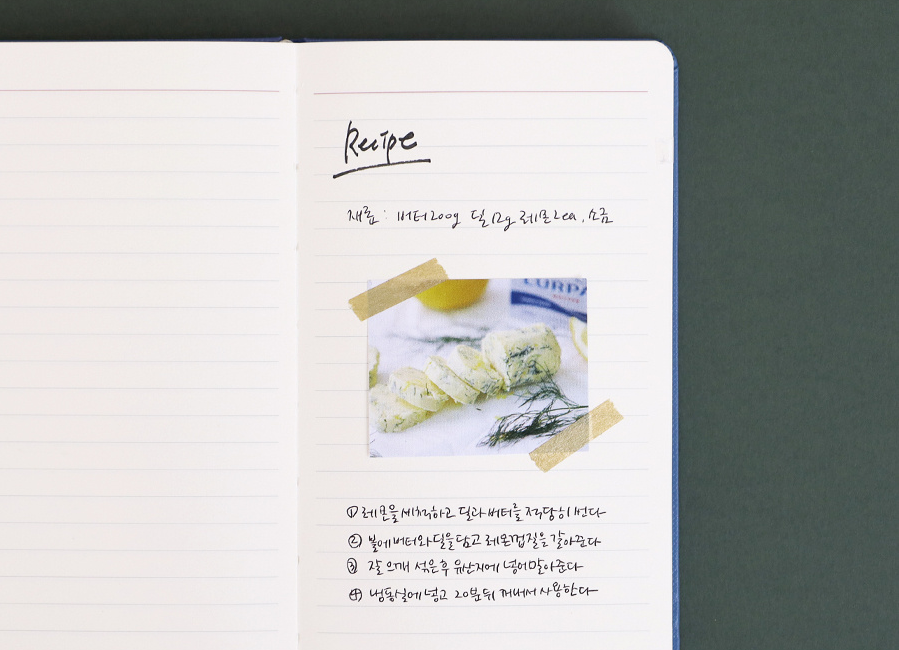 Recipe
재료: 버터200g 딜12g 레몬2ea, 소금
LURPA
① 레몬을 세척하고 딜과 버터를 적당히 썬다
② 볼에 버터와 딜을 담고 레몬껍질을 갈아준다
③ 잘 으깨 섞은 후 유산지에 넣어 말아준다
④ 냉동실에 넣고 20분 뒤 꺼내서 사용한다